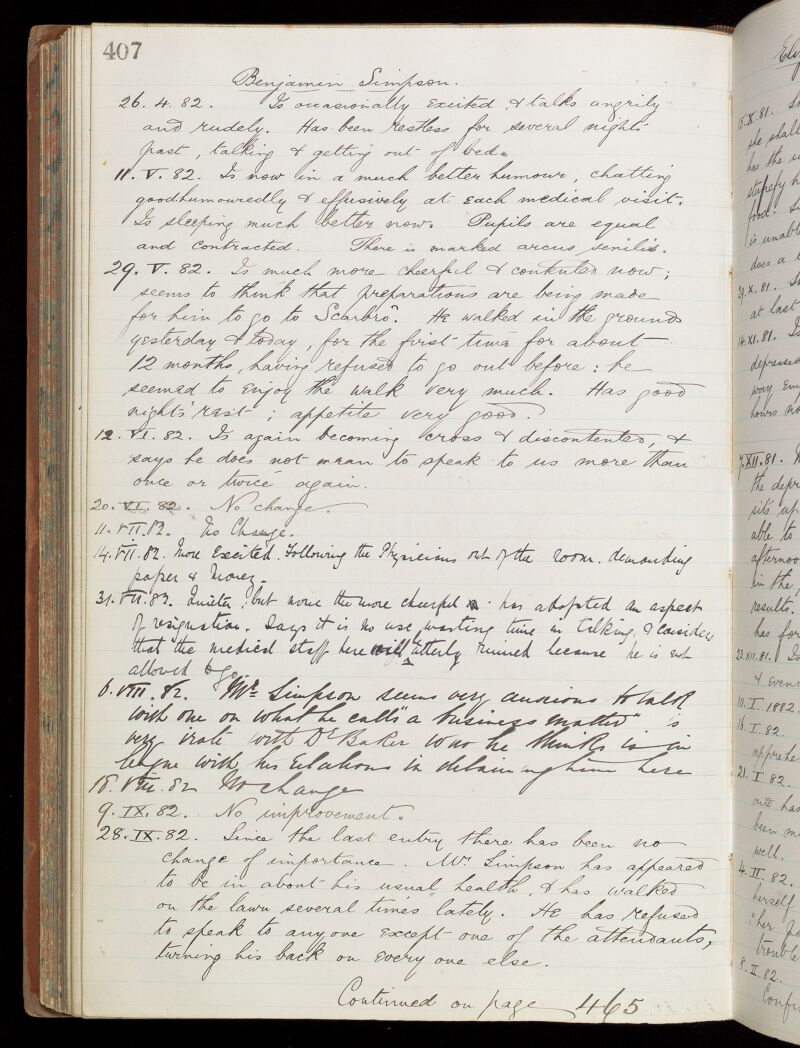 407
Benjamin Simpson.
26. 4. 82. Is occasionally excited & talks angrily
and rudely. Has been restless for several nights
past, talking & getting out of bed.
11. V. 82. Is now in a much better humour, chatting
goodhumouredly & effusively at each medical visit.
Is sleeping much better now. Pupils are equal
and contracted. There is marked arcus senilis.
29. V. 82. Is much more cheerful & contented now;
seems to think that preparations are being made
for him to go to Scarbro'. He walked in the grounds
yesterday & today, for the first time for about
12 months, having refused to go out before: he
seemed to enjoy the walk very much. Has good
nights' rest; appetite very good.
12. VI. 82. Is again becoming cross & discontented, &
says he does not mean to speak to us more than
once or twice again.
20. VI. 82. No change.
11. VII. 82. No Change.
14. VII. 82. More Excited. Following the Physicians out of the room. demanding
paper & Money.
31. VII. 82. Quieter; but none the more cheerful. has adopted an aspect
of resignation. Says it is no use, wasting time in talking, & considers
that the medical staff here will utterly ruined because he is not
allowed to go.
6. VIII. 82. Mr. Simpson seems very anxious to talk
with one on what he calls "a business matter" is
very irate with Dr Baker who he thinks is in
league with his relations in detaining him here
18. VIII. 82 No change
9. IX. 82. No improvement.
28. IX. 82. Since the last entry there has been no
change of importance. Mr. Simpson has appeared
to be in about his usual health, & has walked
on the lawn several times lately. He has refused
to speak to anyone except one of the attendants,
turning his back on every one else.
Continued on page 465
15. X. 81.
she shall
has the
stupefy
food.
is unable
does a
29. X. 81.
at last
14. XI. 81. Is
depressed
way
hours
7. XII. 81.
the depr
sits up
able to
afternoo
in the
results.
has for
23. XII. 81. Is
& even
10. I. 1882.
16. I. 82.
apprehe
21. I. 82.
and has
been
well.
4. II. 82.
herself
"her
trouble
8. II. 82.